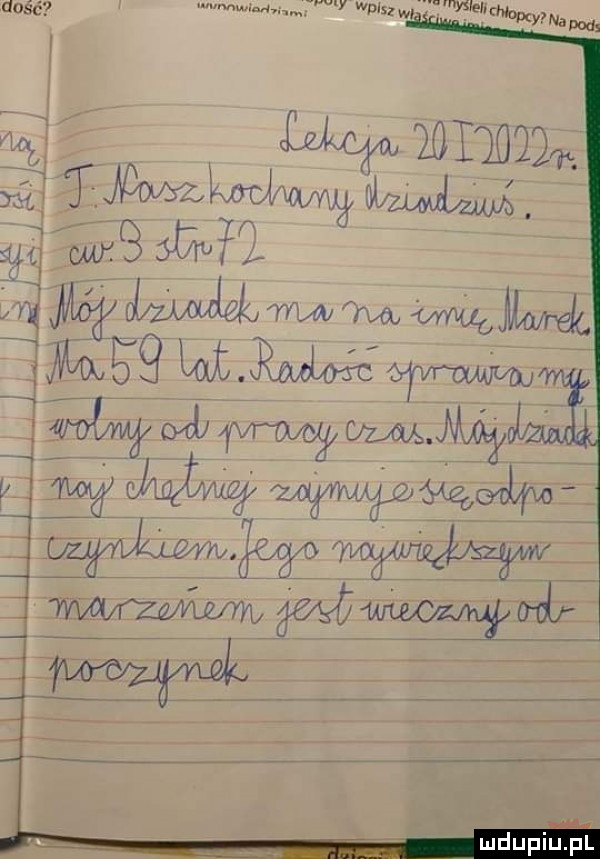 dość?
wpisz
myśleli chłopcy? Na pods
Lekcja 20 I 2022r.
T: Nasz kochany dziadziuś.
ćw. 3 str 72
Mój dziadek ma na imię Marek.
Ma 59 lat. Radość sprawia mu
wolny od pracy czas. Mój dziadek
naj chętniej zajmuje się odpo-
czynkiem. Jego najwiękrszym
marzenem jest wieczny od-
poczynek
mdupiu.pl